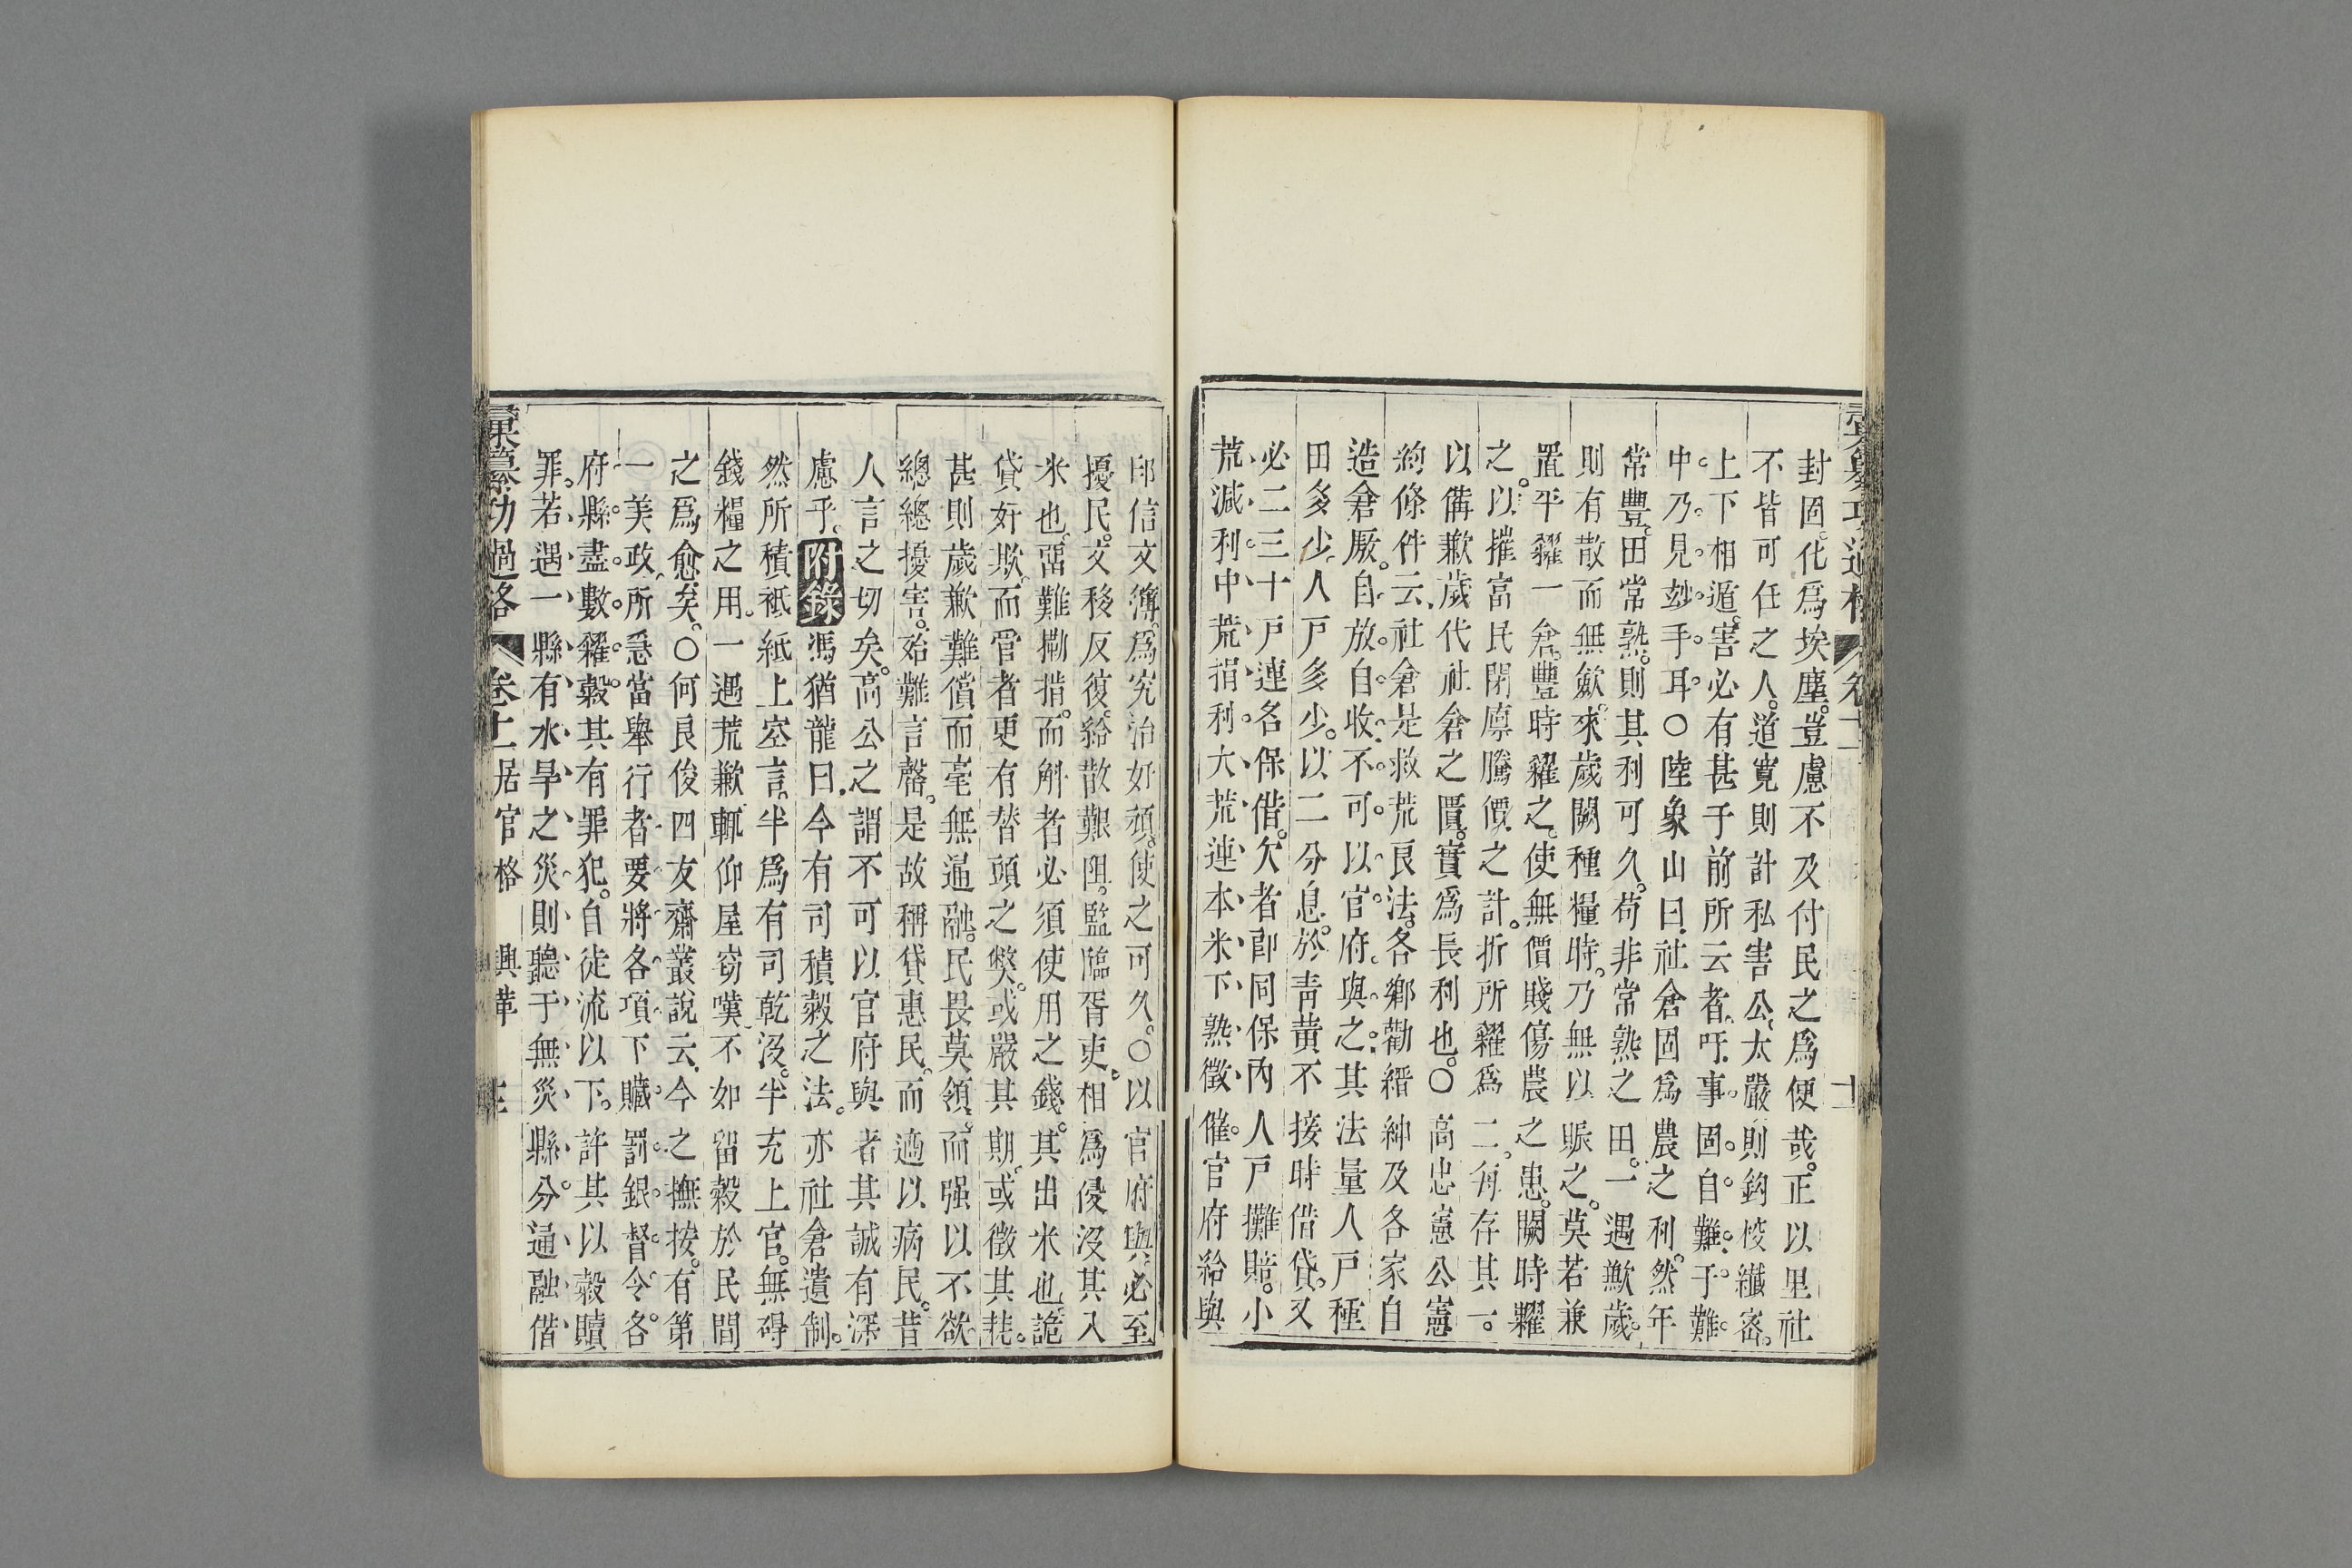 封固。化爲埃塵。豈慮不及付民之爲便哉。正以里社
不皆可任之人。道寬則計私害公。太嚴則鈎校纖密。
上下相遁。害必有甚于前所云者。吁。事固自難。于難
中乃見玅手耳〇陸象山曰。社倉固爲農之利。然年
常豐。田常熟。則其利可久。苟非常熟之田。一遇歉歲。
則有散而無歛。來歲闕種糧時。乃無以賑之。莫若兼
置平糴一倉。豐時糴之。使無價賤傷農之患。闕時糶
之。以摧富民閉廪騰價之計。折所糴爲二。每存其一。
以備歉歲代社倉之匱。實爲長利也。〇高忠憲公憲
約條件云。社倉是救荒良法。各鄉勸縉紳及各家自
造倉厫。自放自收。不可以官府與之。其法量人戸種
田多少。人戸多少。以二分息。於靑黃不接時借貸。又
必二三十戸連名保借。欠者卽同保內人戸攤賠。小
荒減利中荒捐利大荒連本米下熟徵催。官府給與
印信文簿。爲究治奸頑。使之可久。〇以官府與。必至
擾民。文移反復。給散艱阻。監臨胥吏。相爲侵沒其入
米也。畱難勒揹。而斛者必須使用之錢。其出米也。詭
貸奸欺。而管者更有替頭之獘。或嚴其期。或徵其耗。
甚則歲歉難償而毫無通融。民畏莫領。而强以不欲。
總總擾害。殆難言罄。是故稱貸惠民。而適以病民。昔
人言之切矣。高公之謂不可以官府與者其誠有深
慮乎。附錄馮猶龍曰。今有司積穀之法。亦社倉遺制。
然所積祗紙上空言。半爲有司乾沒。半充上官。無碍
錢糧之用。一遇荒歉輒仰屋窃嘆。不如留穀於民間
之爲愈矣。〇何良俊四友齋叢說云。今之撫按。有第
一美政。所急當舉行者。要將各項下贜罰銀。督令各
府縣。盡數糴穀其有罪犯。自徒流以下。許其以穀贖
罪。若遇一縣有水旱之災。則聽于無災縣分。通融借
彙纂功過格 卷十一 居官格 興革